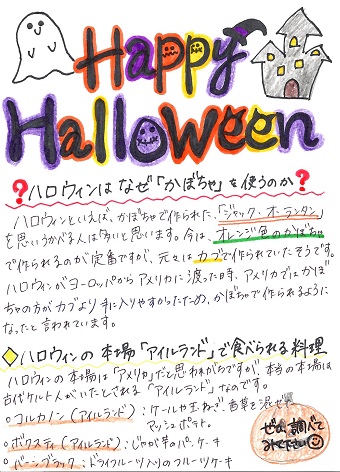 Happy
Halloween
❓ハロウィンはなぜ「かぼちゃ」を使うのか❓
ハロウィンといえば、かぼちゃで作られた、「ジャック・オー・ランタン」
を思いうかべる人は多いと思います。今は、オレンジ色のかぼちゃ
で作られるのが定番ですが、元々はカブで作られていたそうです。
ハロウィンがヨーロッパからアメリカに渡った時、アメリカではかぼ
ちゃの方がカブより手に入りやすかったため、かぼちゃで作られるように
なったと言われています。
◇ハロウィンの本場「アイルランド」で食べられる料理
ハロウィンの本場は「アメリカ」だと思われがちですが、本当の本場は
古代ケルト人がいたとされる「アイルランド」なのです。
○コルカノン(アイルランド):ケールや玉ねぎ、香草を混ぜた
マッシュポテト。
○ボクスティ(アイルランド):じゃが芋のパンケーキ
○バーンブラック:ドライフルーツ入りのフルーツケーキ
ぜひ調べて
みて下さい